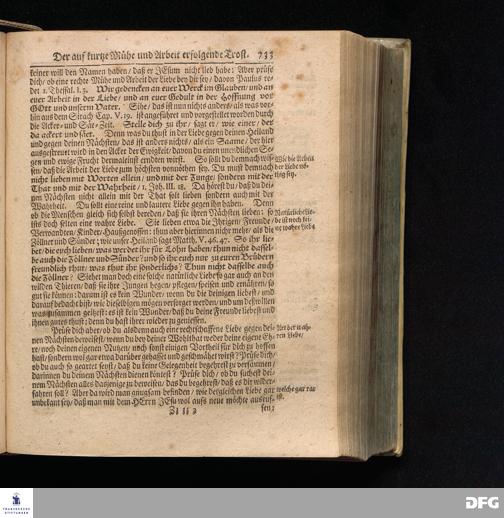 Der auf kurtze Mühe und Arbeit erfolgende Trost. 733
keiner will den Namen haben / daß er JEsum nicht lieb habe: Aber prüfe
dich / ob eine rechte Mühe und Arbeit der Liebe bey dir sey / davon Paulus re-
det 1. Thessal. I. 3. Wir gedencken an euer Werck im Glauben / und an
euer Arbeit in der Liebe / und an euer Gedult in der Hoffnung vor
GOtt und unserm Vater. Sihe / das ist nun nichts anders / als was vor-
hin aus dem Sirach Cap. V. 19. ist angeführet und vorgestellet worden durch
die Acker- und Säe-Zeit. Stelle dich zu ihr / sagt er / wie einer / der
da ackert und säet. Denn was du thust in der Liebe gegen deinen Heiland
und gegen deinen Nächsten / das ist anders nichts / als ein Saame / der hier
ausgestreuet wird in den Acker der Ewigkeit / davon du einen unendlichen Se-
gen und ewige Frucht dermaleinst erndten wirst. So solt du demnach wis-
sen / daß die Arbeit der Liebe zum höchsten vonnöthen sey. Du must demnach
nicht lieben mit Worten allein / und mit der Zunge / sondern mit der
That und mit der Wahrheit / 1. Joh. III. 18. Da hörest du / daß du dei-
nen Nächsten nicht allein mit der That solt lieben sondern auch mit der
Wahrheit. Du solt eine reine und lautere Liebe gegen ihn haben. Denn
ob die Menschen gleich sich selbst bereden / daß sie ihren Nächsten lieben: so
ists doch selten eine wahre Liebe. Sie lieben etwa die Ihrigen / Freunde /
Verwandten / Kinder / Haußgenossen: thun aber hierinnen nicht mehr / als die
Zöllner und Sünder; wie unser Heiland sagt Matth. V. 46. 47. So ihr lie-
bet / die euch lieben / was werdet ihr für Lohn haben / thun nicht dassel-
be auch die Zöllner und Sünder? und so ihr euch nur zu euren Brüdern
freundlich thut / was thut ihr sonderlichs? Thun nicht dasselbe auch
die Zöllner? Siehet man doch eine solche natürliche Liebe so gar auch an den
wilden Thieren / daß sie ihre Jungen hegen / pflegen / speisen und ernähren / so
gut sie können: darum ist es kein Wunder / wenn du die deinigen liebest / und
darauf bedacht bist / wie dieselbigen mögen versorget werden / und um deßwillen
was zusammen geitzest: es ist kein Wunder / daß du deine Freunde liebest und
ihnen gutes thust; denn du hast ihrer wieder zu geniessen.
Prüfe dich aber / ob du alsdenn auch eine rechtschaffene Liebe gegen dei-
nen Nächsten beweisest / wenn du bey deiner Wohlthat weder deine eigene Eh-
re / noch deinen eigenen Nutzen / noch sonst einigen Vortheil für dich zu hoffen
hast / sondern wol gar etwa darüber gehasset und geschmähet wirst? Prüfe dich /
ob du auch so geartet seyst / daß du keine Gelegenheit begehrest zu versäumen /
darinnen du deinem Nächsten dienen köntest? Prüfe dich / ob du suchest dei-
nem Nächsten alles dasjenige zu beweisen / das du begehrest / daß es dir wieder-
fahren soll? Aber da wird man gnugsam befinden / wie dergleichen Liebe gar
unbekant sey / daß man mit dem HErrn JEsu wol aufs neue möchte ausruf-
sen:
Wie die Arbeit
der Liebe nö-
thig sey.
Natürliche Lie-
be ist noch kei-
ne wahre Liebe
Art der wah-
ren Liebe,
welche gar rar
ist.
FRANCKESCHE
STIFTUNGEN
DFG